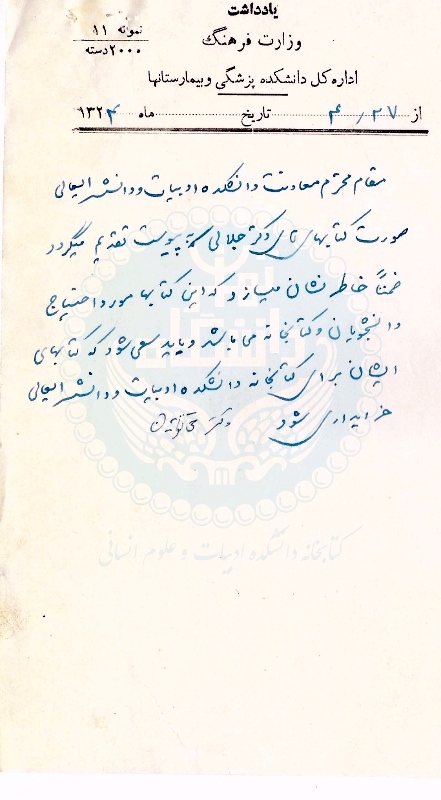 یادداشت
نمونه ۱۱
۲۰۰۰ دسته
وزارت فرهنگ
اداره کل دانشکده پزشگی و بیمارستانها
از ۴٫۲۷ تاریخ ماه ۱۳۲۴
مقام محترم معاونت دانشکده ادبیات و دانشسرایعالی
صورت کتابهای آقای دکتر جلالی بپیوست تقدیم میگردد
ضمناً خاطر نشان میسازد که این کتابها مورد احتیاج
دانشجویان و کتابخانه می باشد و باید سعی شود که کتابهای
ایشان برای کتابخانه دانشکده ادبیات و دانشسرایعالی
خریداری شود دکتر
کتابخانه دانشکده ادبیات و علوم انسانی